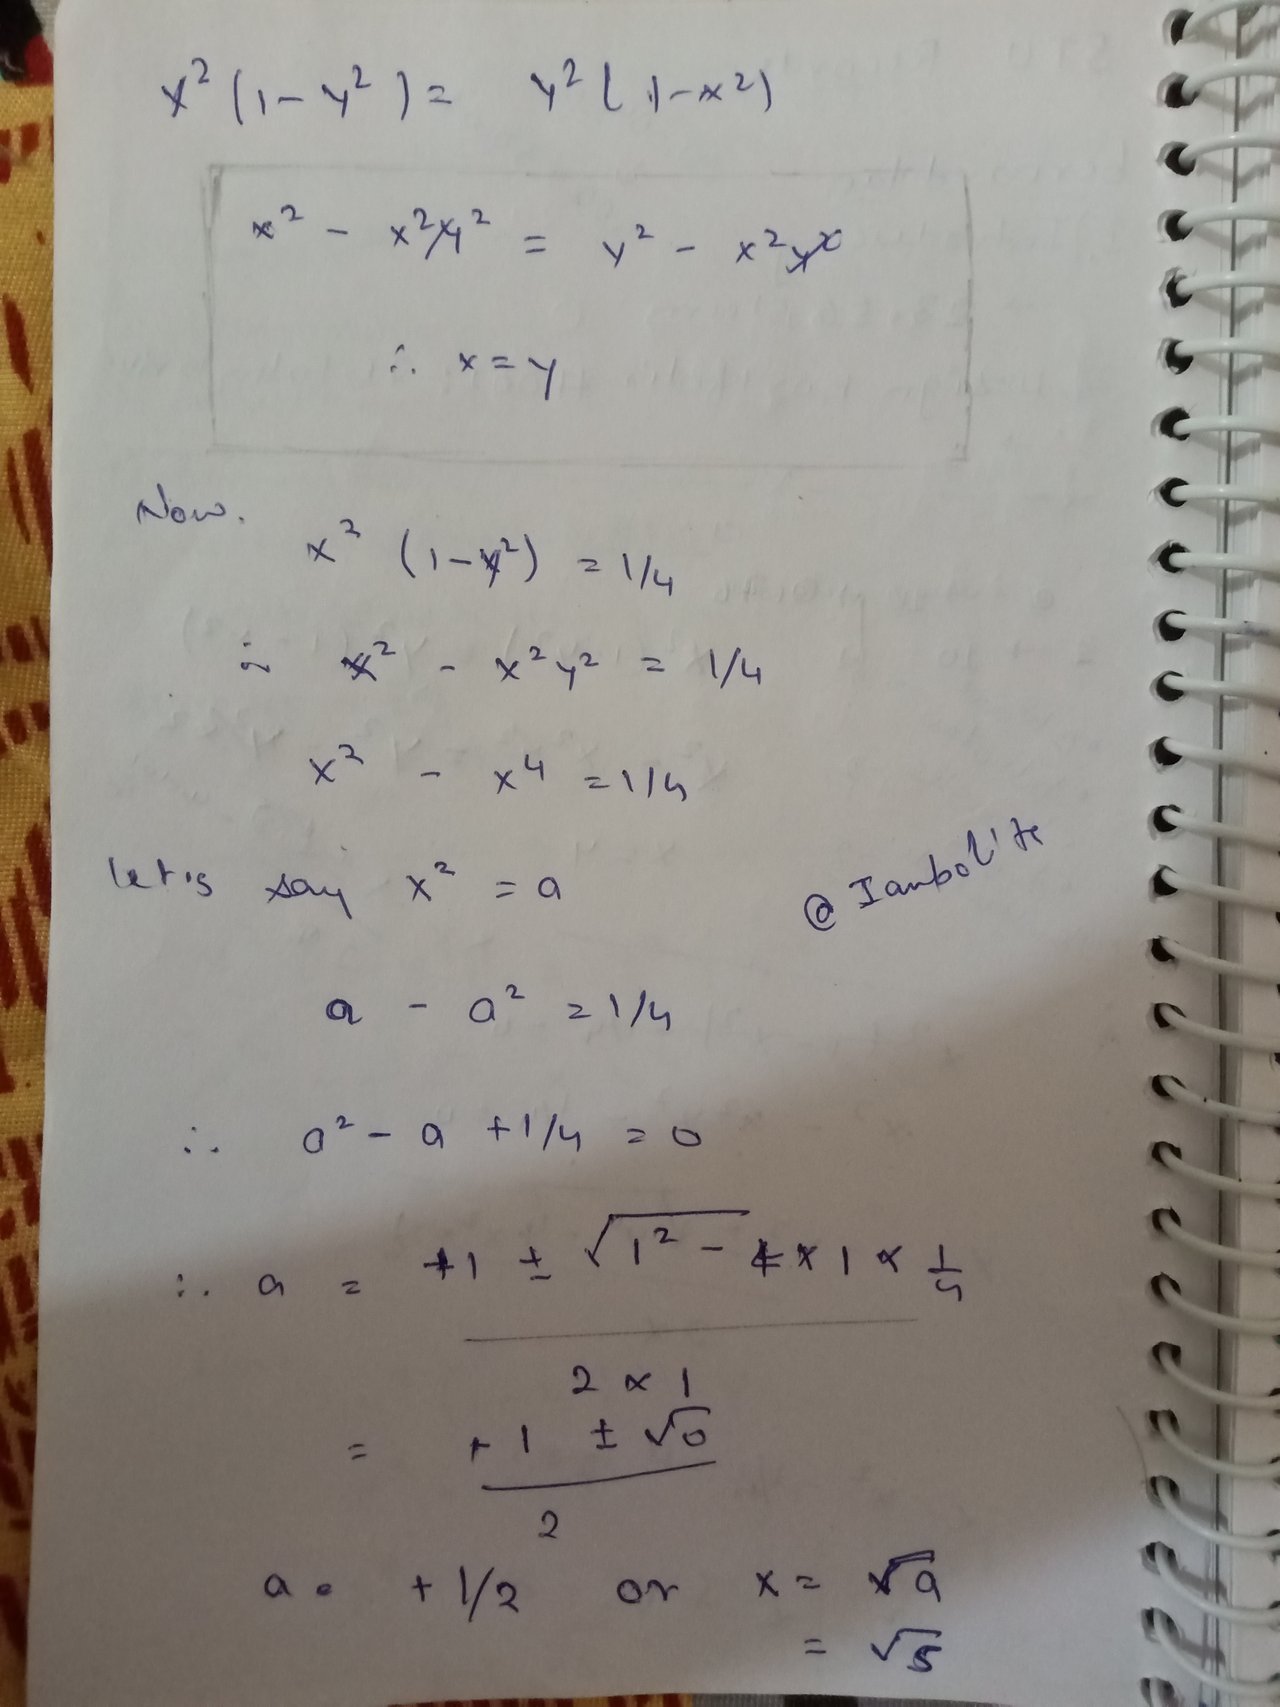 x² (1 - y²) = y² (1 - x²)
x² - x²y² = y² - x²y²
∴ x = y
Now.
x² (1 - y²) = 1/4
∴ x² - x²y² = 1/4
x² - x⁴ = 1/4
let's say x² = a
@Iambolite
a - a² = 1/4
∴ a² - a + 1/4 = 0
∴ a = +1 ± √1² - 4 × 1 × 1/4
2 × 1
= +1 ± √0
2
a = +1/2 or x = √a
= √5